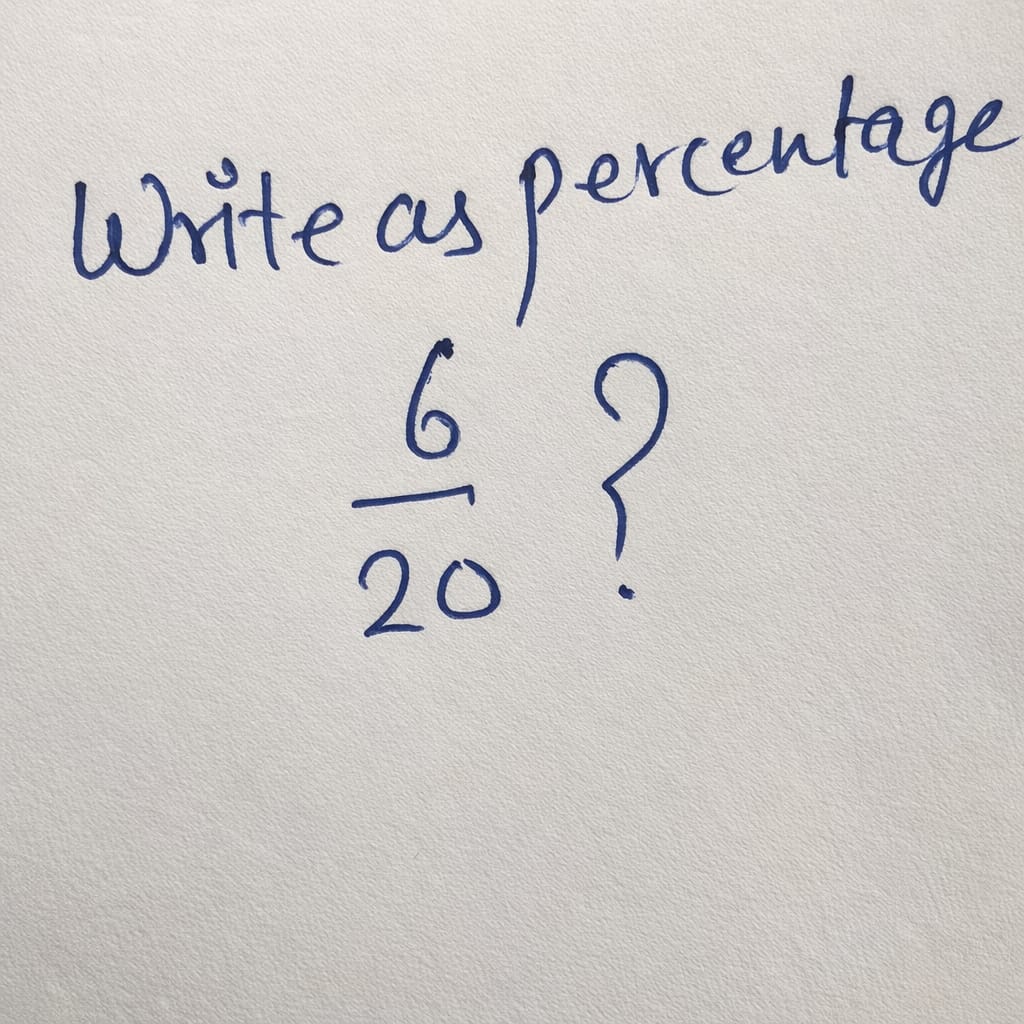 Write as percentage
6
20
?